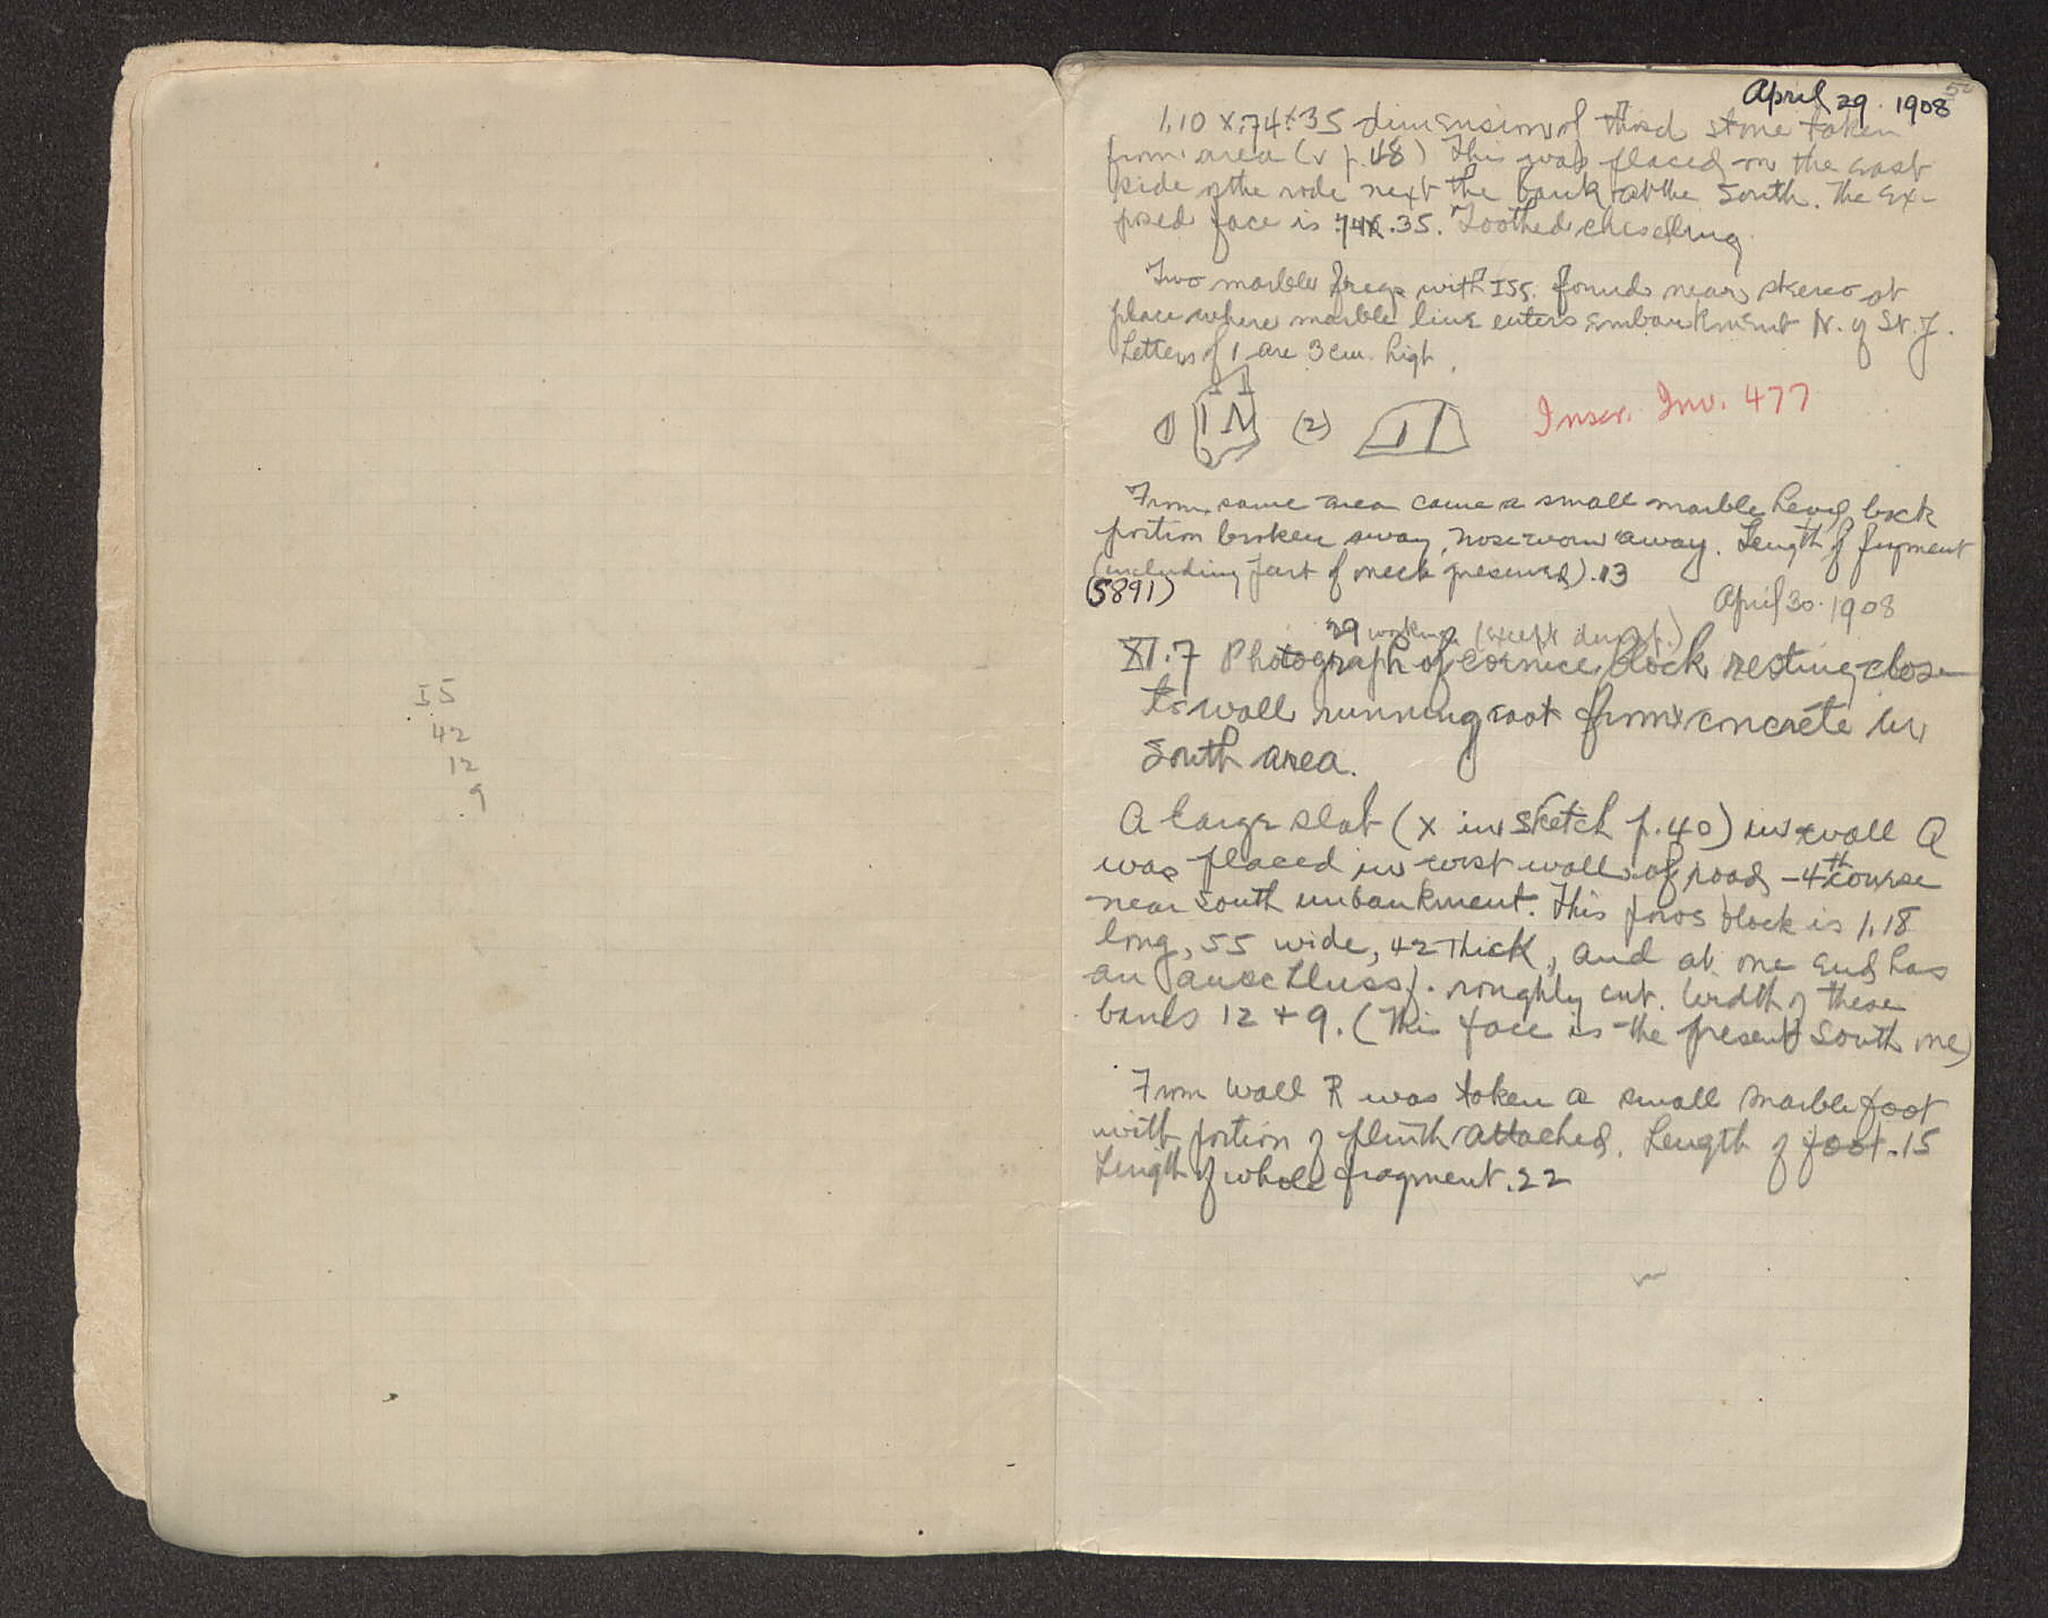 55
42
12
9
April 29. 1908
50
1.10 x .74 x .35 dimension of third stone taken
from area (v p. 48) This was placed on the east
side of the rode next the bank at the South. The ex-
posed face is .74 x .35. Toothed chiselling
Two marble frags with ISS. found near stereo at
place where marble line enters embankment N. of St. J.
Letters of 1 are 3 cm. high.
(1) IN (2)
Inscr. Inv. 477
From same area came a small marble head, back
portion broken away, nose worn away. Length of fragment
(including part of neck preserved) .13
(5891)
April 30. 1908
29 workmen (except dump.)
XI.7 Photograph of cornice block resting close
to wall running east from concrete in
South area.
A large slab (x in sketch p. 40) in wall Q
was placed in west wall of road - 4th course
near south embankment. This poros block is 1.18
long, 55 wide, 42 thick, and at one end has
an anschluss f. roughly cut. Width of these
bands 12 + 9. (This face is the present South one)
From wall R was taken a small marble foot
with portion of plinth attached. Length of foot .15
Length of whole fragment .22